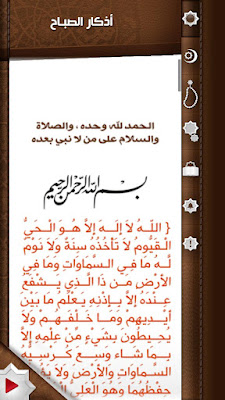 أذكار الصباح
الحمد لله وحده ، والصلاة
والسلام على من لا نبي بعده
بسم الله الرحمن الرحيم
{ اللّهُ لاَ إِلَهَ إِلاَّ هُوَ الْحَيُّ
الْقَيُّومُ لاَ تَأْخُذُهُ سِنَةٌ وَلاَ نَوْمٌ
لَّهُ مَا فِي السَّمَاوَاتِ وَمَا فِي
الأَرْضِ مَن ذَا الَّذِي يَشْفَعُ
عِنْدَهُ إِلاَّ بِإِذْنِهِ يَعْلَمُ مَا بَيْنَ
أَيْدِيهِمْ وَمَا خَلْفَهُمْ وَلاَ
يُحِيطُونَ بِشَيْءٍ مِّنْ عِلْمِهِ إِلاَّ
بِمَا شَاء وَسِعَ كُرْسِيُّهُ
السَّمَاوَاتِ وَالأَرْضَ وَلاَ يَؤُودُهُ
حِفْظُهُمَا وَهُوَ الْعَلِيُّ